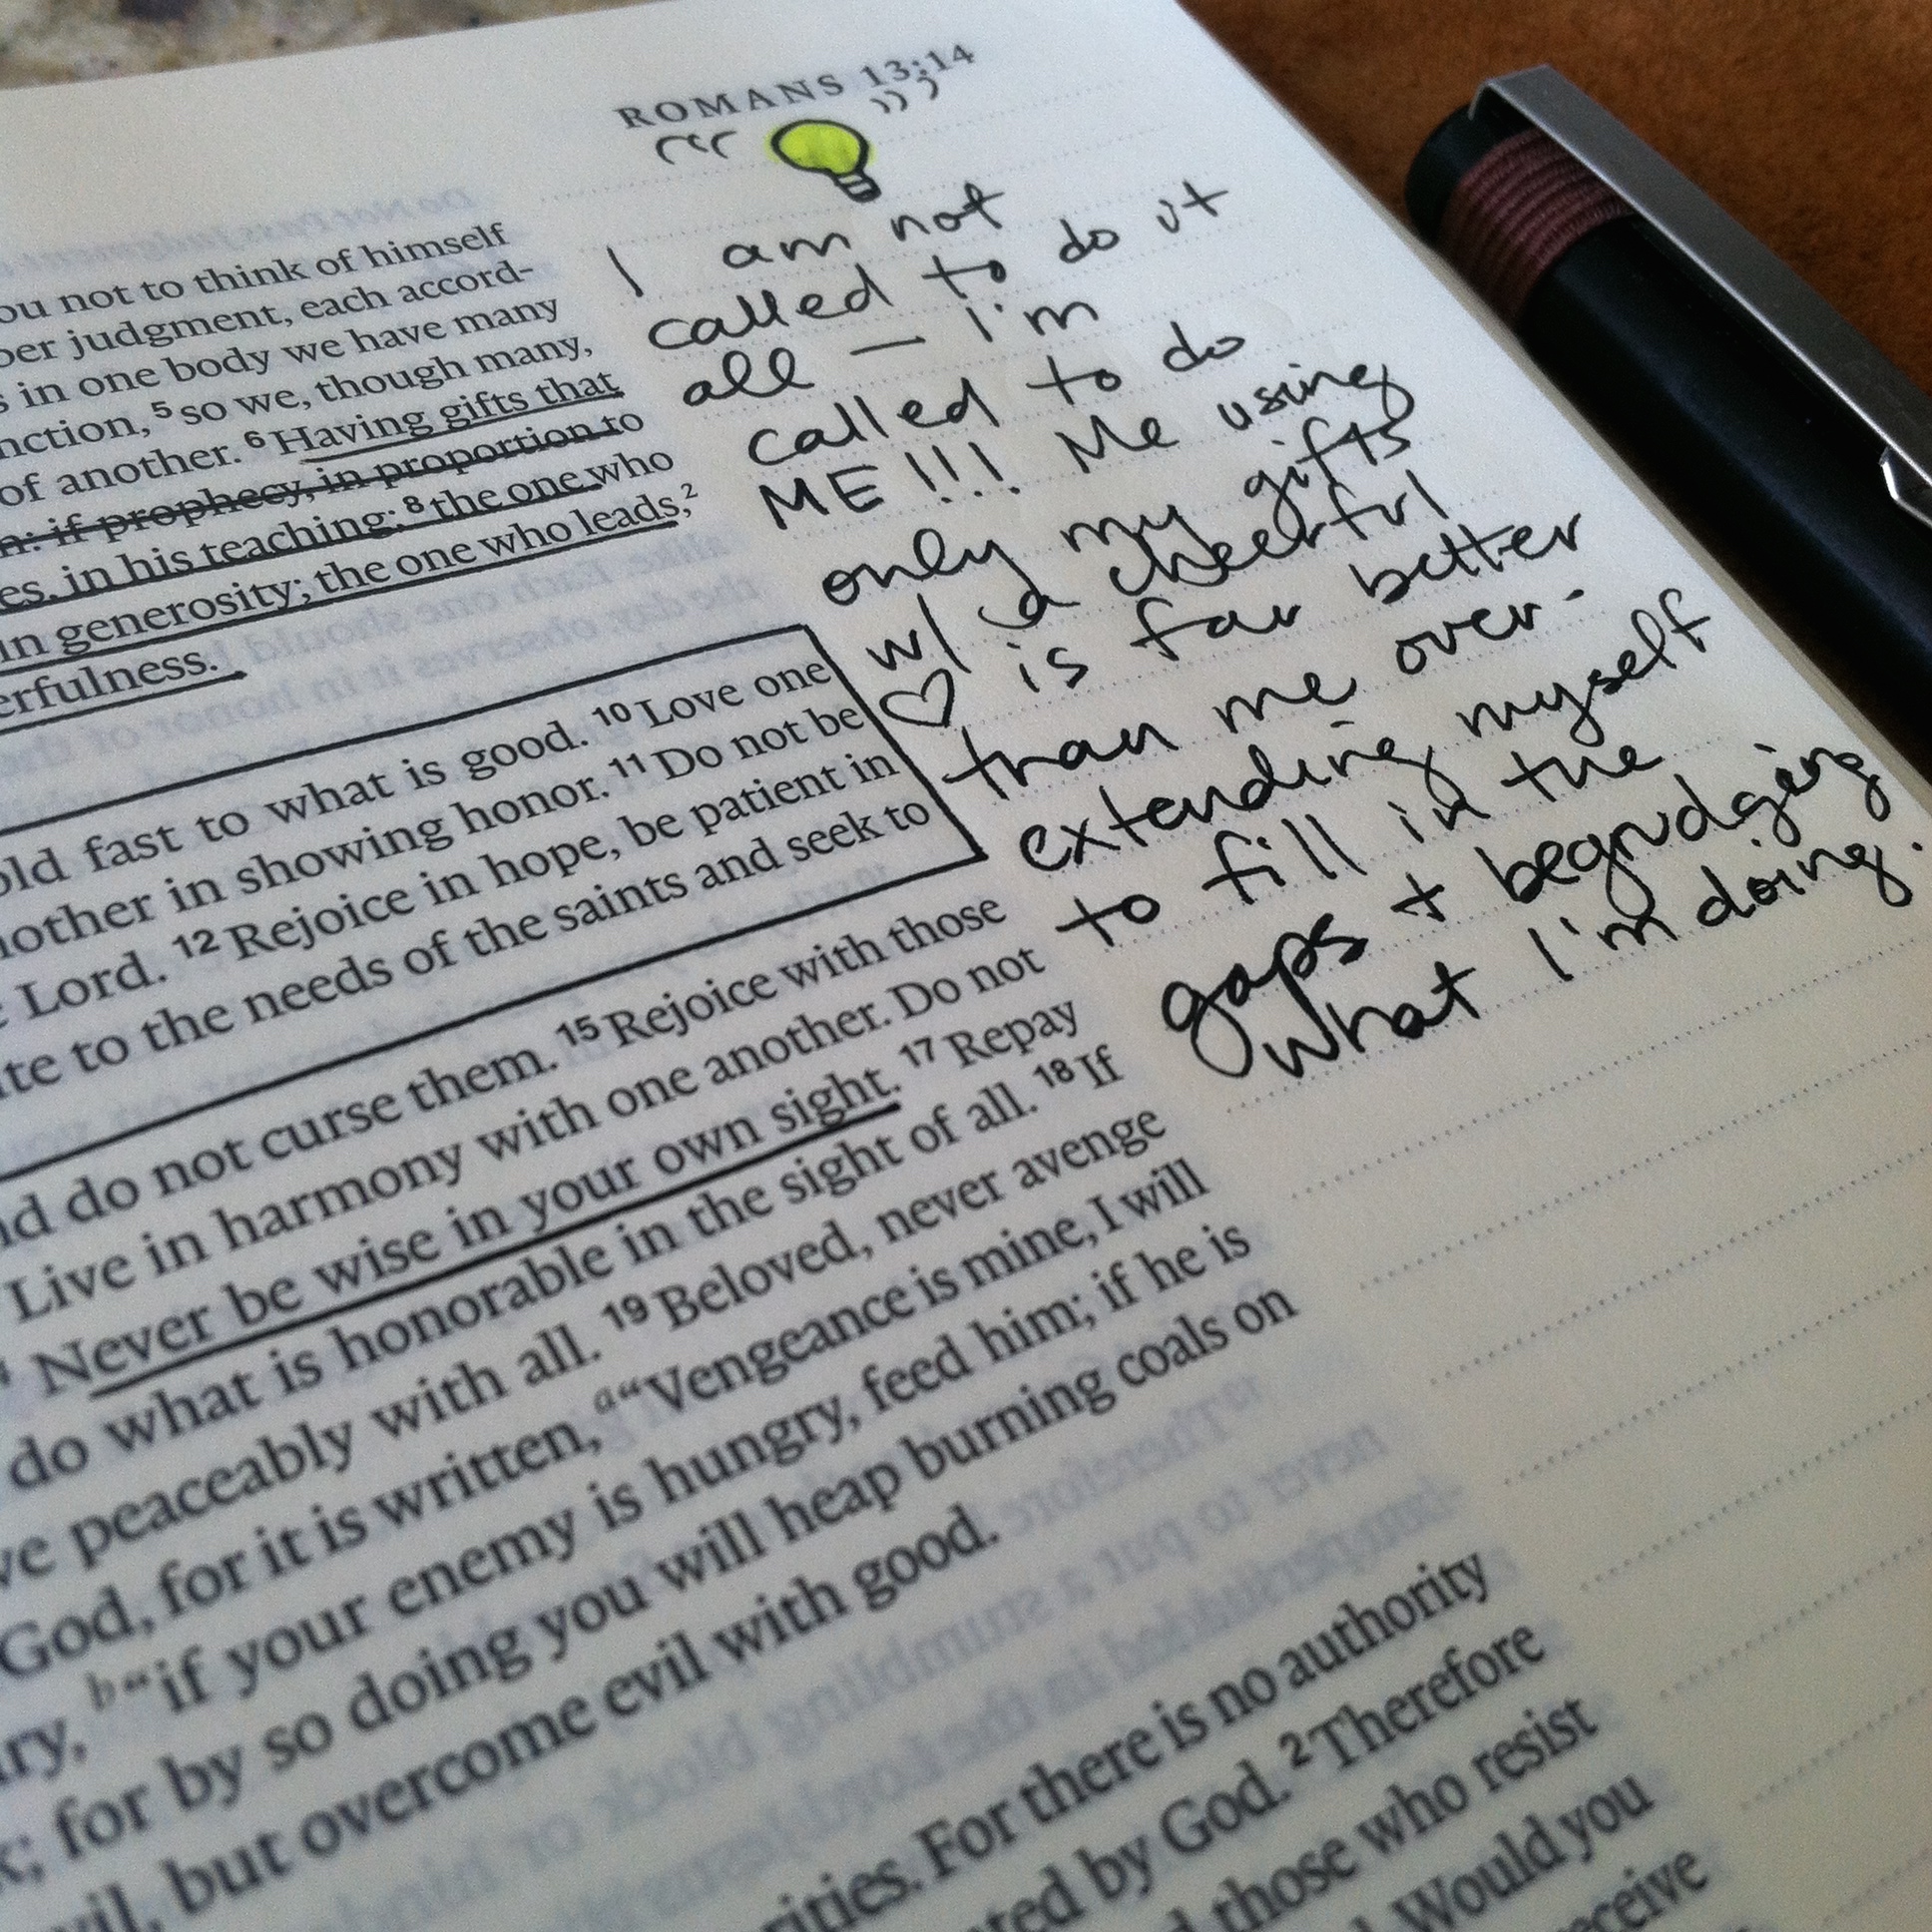 ROMANS 13:14
I am not
called to do it
all — I'm
called to do
ME!!! Me using
only my gifts
w/ a cheerful
♡ is far better
than me over-
extending myself
to fill in the
gaps + begrudging
what I'm doing.
ou not to think of himself
ber judgment, each accord-
s in one body we have many
nction, 5 so we, though many,
of another. 6 Having gifts that
n: if prophecy, in proportion to
es, in his teaching; 8 the one who
in generosity; the one who leads,2
erfulness.
old fast to what is good. 10 Love one
nother in showing honor. 11 Do not be
Lord. 12 Rejoice in hope, be patient in
ute to the needs of the saints and seek to
nd do not curse them. 15 Rejoice with those
Live in harmony with one another. Do not
Never be wise in your own sight. 17 Repay
do what is honorable in the sight of all. 18 If
ve peaceably with all. 19 Beloved, never avenge
God, for it is written, a“Vengeance is mine, I will
ry, b“if your enemy is hungry, feed him; if he is
k; for by so doing you will heap burning coals on
vil, but overcome evil with good.
rities. For there is no authority
ted by God. 2 Therefore
those who resist
Would you
receive